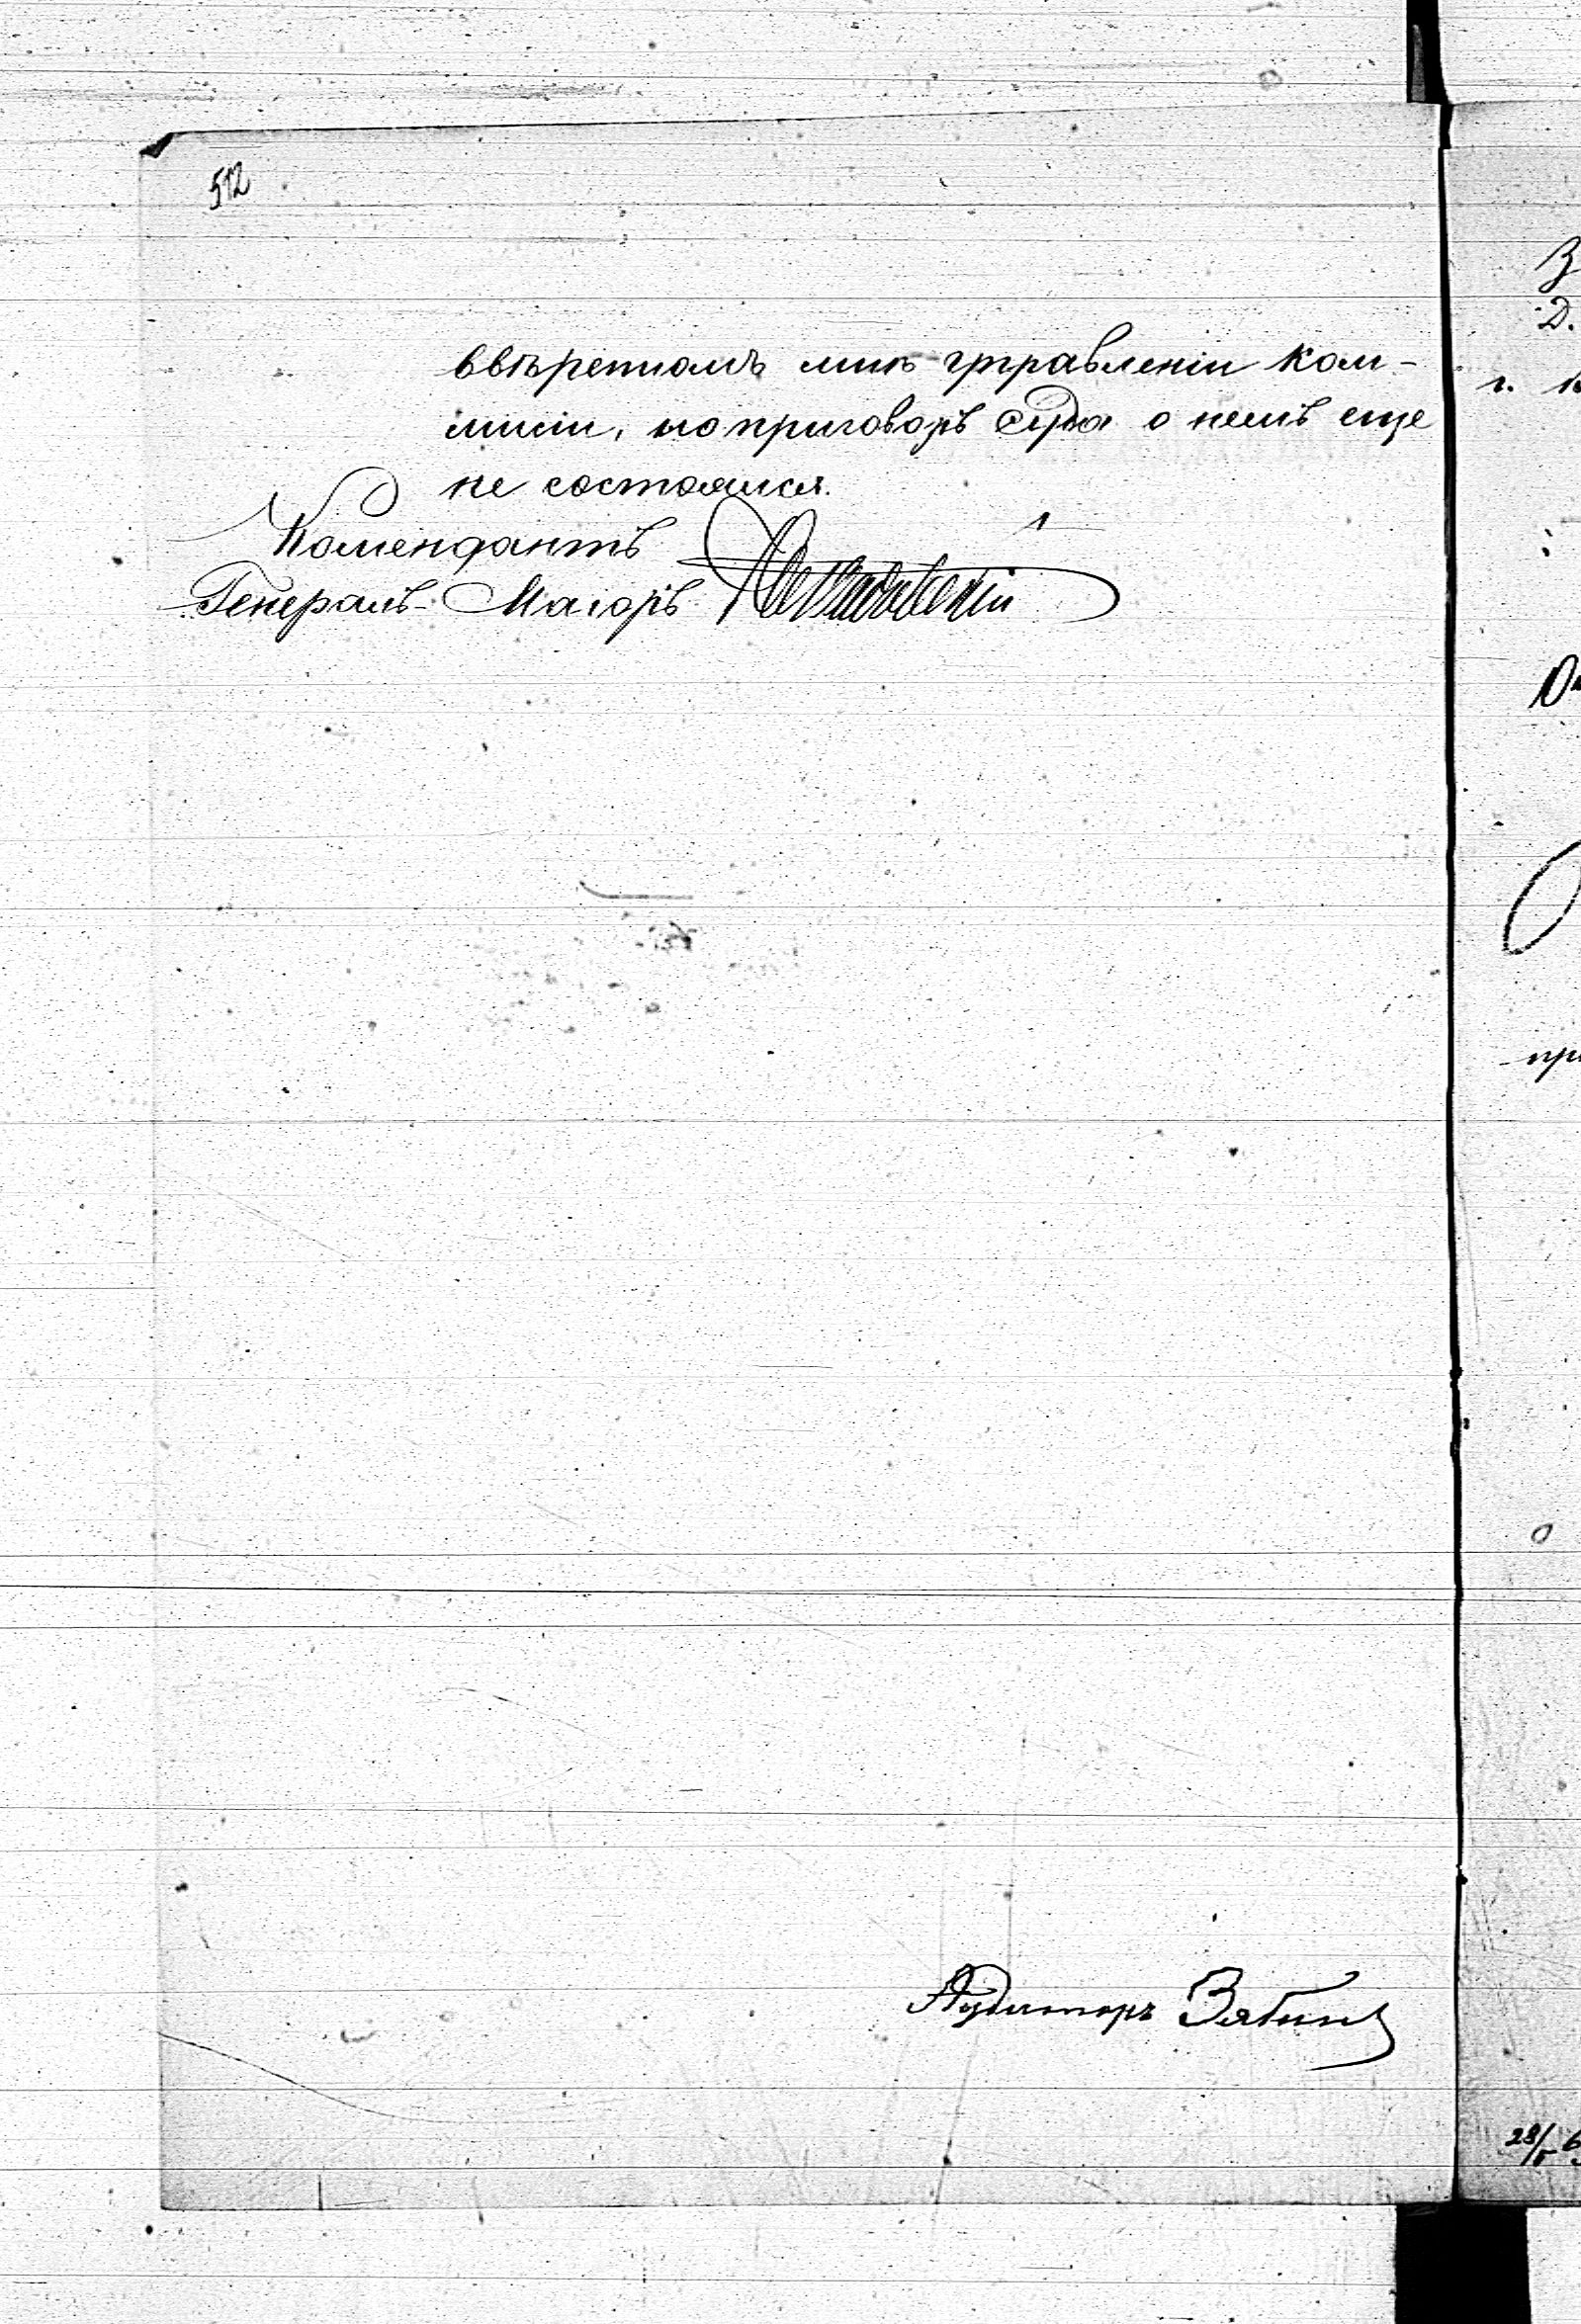 512
ввѣренномъ мнѣ управленіи ком-
мисіи, но приговоръ суда о немъ еще
не состоялся.
Комендантъ
Генералъ-Маіоръ
Аудиторъ Зябинъ